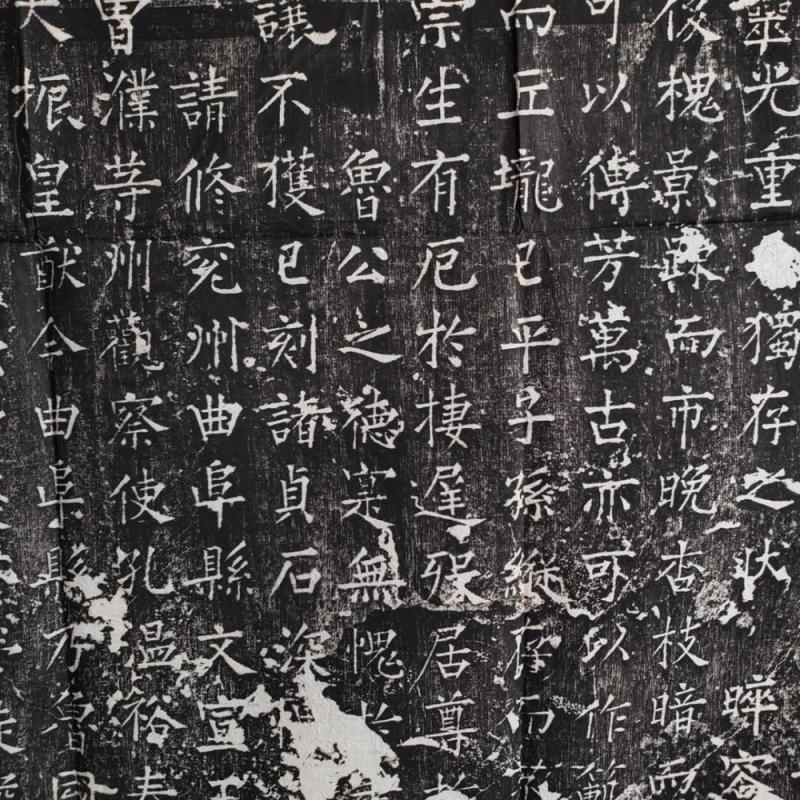 光重獨存之狀睟容
後槐影踈而市晚杏枝暗而
可以傳芳萬古亦可以作範
而丘壠已平子孫縱存而
宗生有厄於棲遲歿居尊於
魯公之德寔無愧於
讓不獲已刻諸貞石深
請修兖州曲阜縣文宣王
曹濮等州觀察使孔溫裕奏
大振皇猷今曲阜縣乃魯國